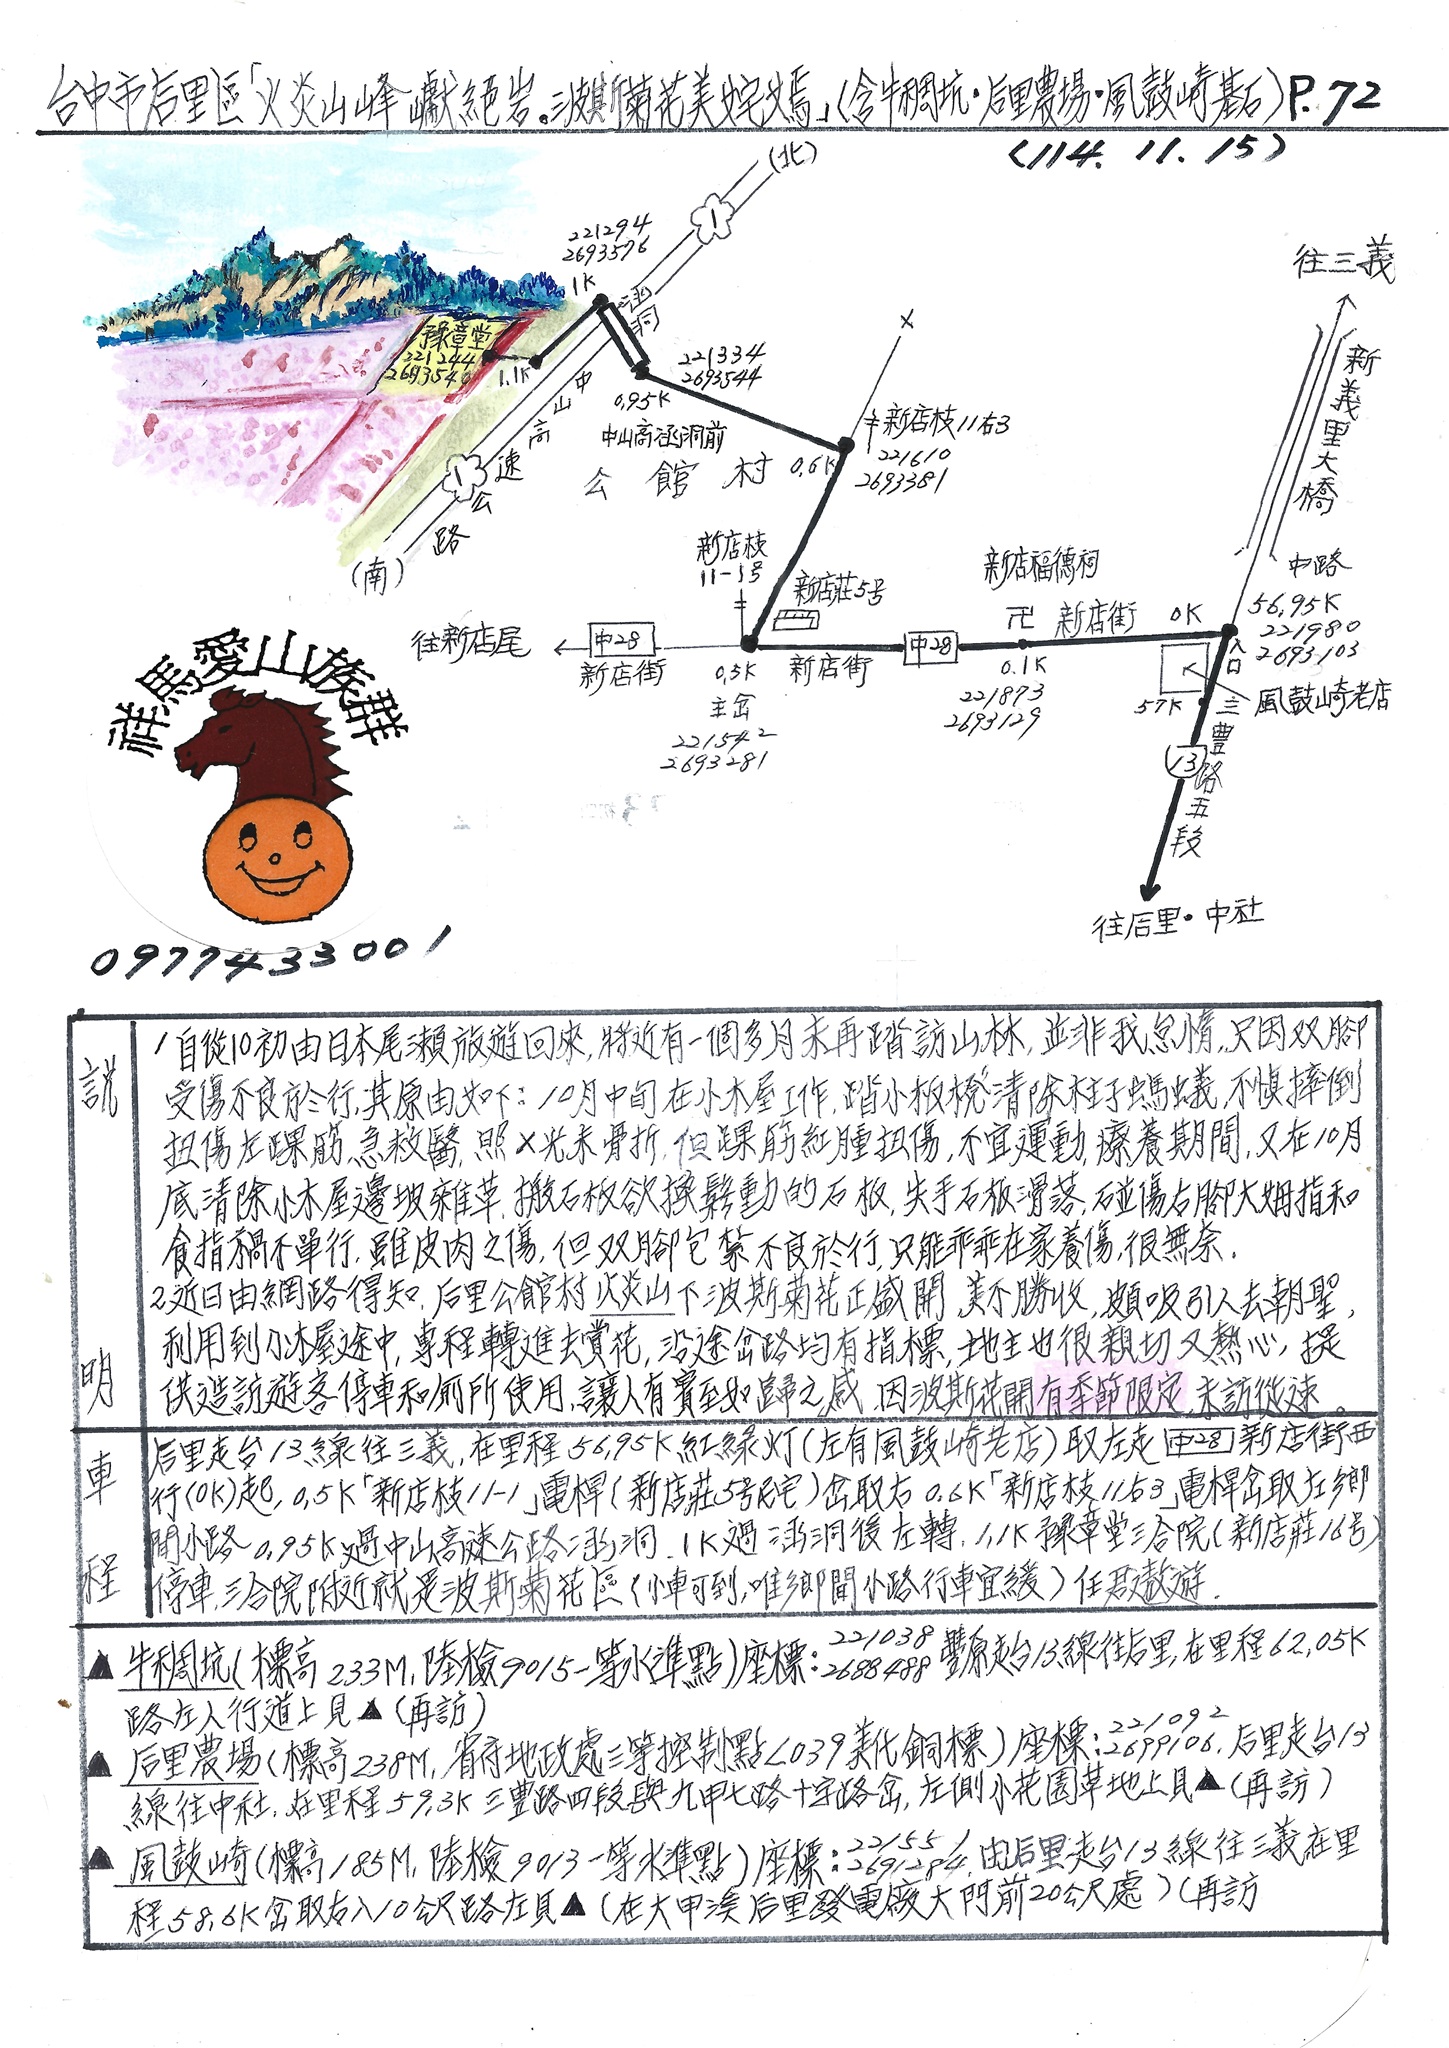 台中市后里區「火炎山峰巘絕岩。波斯菊花美姹嫣」(含牛稠坑·后里農場·風鼓崎基石) P.72
(114.11.15)
(北)
1
往三義
221294
2693576
1K
涵洞
豫章堂
221244
2693546
1.1K
221334
2693544
0.95K
中山高涵洞前
中山高速公路
1
(南)
新義里大橋
新店枝11右3
221610
2693381
0.6K
公館村
新店枝
11-1号
新店莊5号
新店福德祠
卍
中路
56.95K
221980
2693103
往新店尾
中28
新店街
0.5K
主岔
221542
2693281
新店街
中28
0.1K
221873
2693129
新店街
0K
入口
57K
風鼓崎老店
13
三豐路五段
往后里·中社
祥馬愛山族群
0977433001
說明
1自從10初由日本尾瀨旅遊回來,將近有一個多月未再踏訪山林,並非我怠惰,只因双腳
受傷不良於行,其原由如下:10月中旬在小木屋工作,踏小板櫈清除柱子螞蟻,不慎摔倒
扭傷左踝筋,急救醫,照X光未骨折,但踝筋紅腫扭傷,不宜運動,療養期間,又在10月
底清除小木屋邊坡雜草,搬石板欲換鬆動的石板,失手石板滑落,砸傷右腳大姆指和
食指禍不單行,雖皮肉之傷,但双腳包紮不良於行,只能乖乖在家養傷,很無奈.
2.近日由網路得知,后里公館村火炎山下波斯菊花正盛開,美不勝收,頗吸引人去朝聖,
利用到小木屋途中,專程轉進去賞花,沿途岔路均有指標,地主也很親切又熱心,提
供造訪遊客停車和廁所使用,讓人有賓至如歸之感.因波斯花開有季節限定,未訪從速。
車程
后里走台13線往三義,在里程56.95K紅綠灯(左有風鼓崎老店)取左走中28新店街西
行(0K)起,0.5K「新店枝11-1」電桿(新店莊5号民宅)岔取右0.6K「新店枝11右3」電桿岔取左鄉
間小路0.95K過中山高速公路涵洞.1K過涵洞後左轉.1.1K豫章堂三合院(新店莊16号)
停車,三合院附近就是波斯菊花區(小車可到,唯鄉間小路行車宜緩)任君敖遊.
▲牛稠坑(標高233M,陸檢9015一等水準點)座標:221038 2688488豐原走台13線往后里,在里程62.05K
路左人行道上見▲(再訪)
▲后里農場(標高238M,省府地政處三等控制點L039美化銅標)座標:221092 2699106,后里走台13
線往中社,在里程59.3K三豐路四段與九甲七路十字路岔,左側小花園草地上見▲(再訪)
▲風鼓崎(標高185M,陸檢9013一等水準點)座標:221551 2691284,由后里走台13線往三義在里
程58.6K岔取右入10公尺路左見▲(在大甲溪后里發電廠大門前20公尺處)(再訪